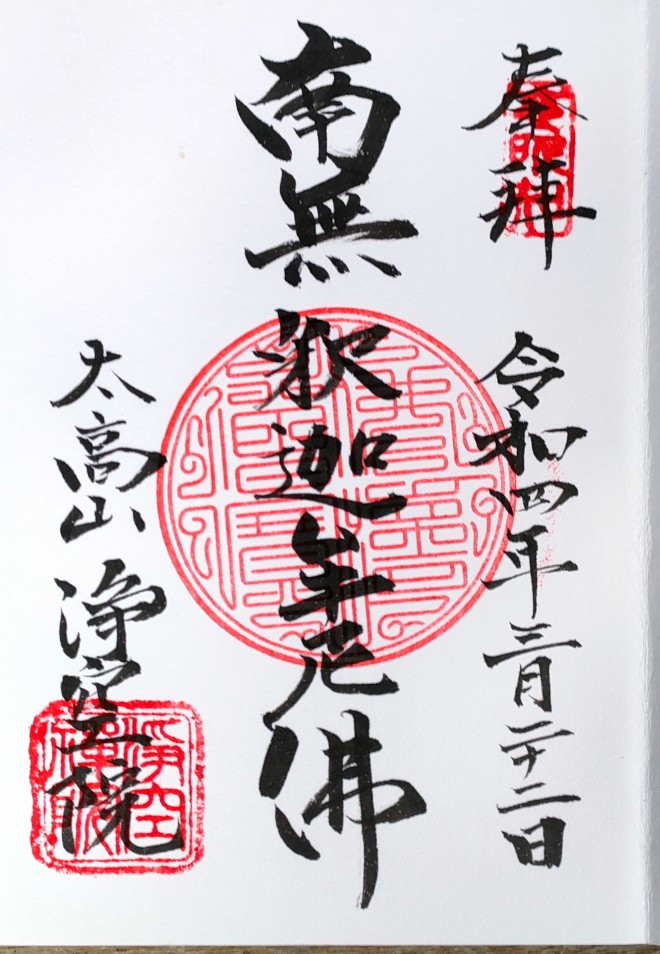 奉拝
令和四年三月二十二日
南無釈迦牟尼佛
太高山 浄空院